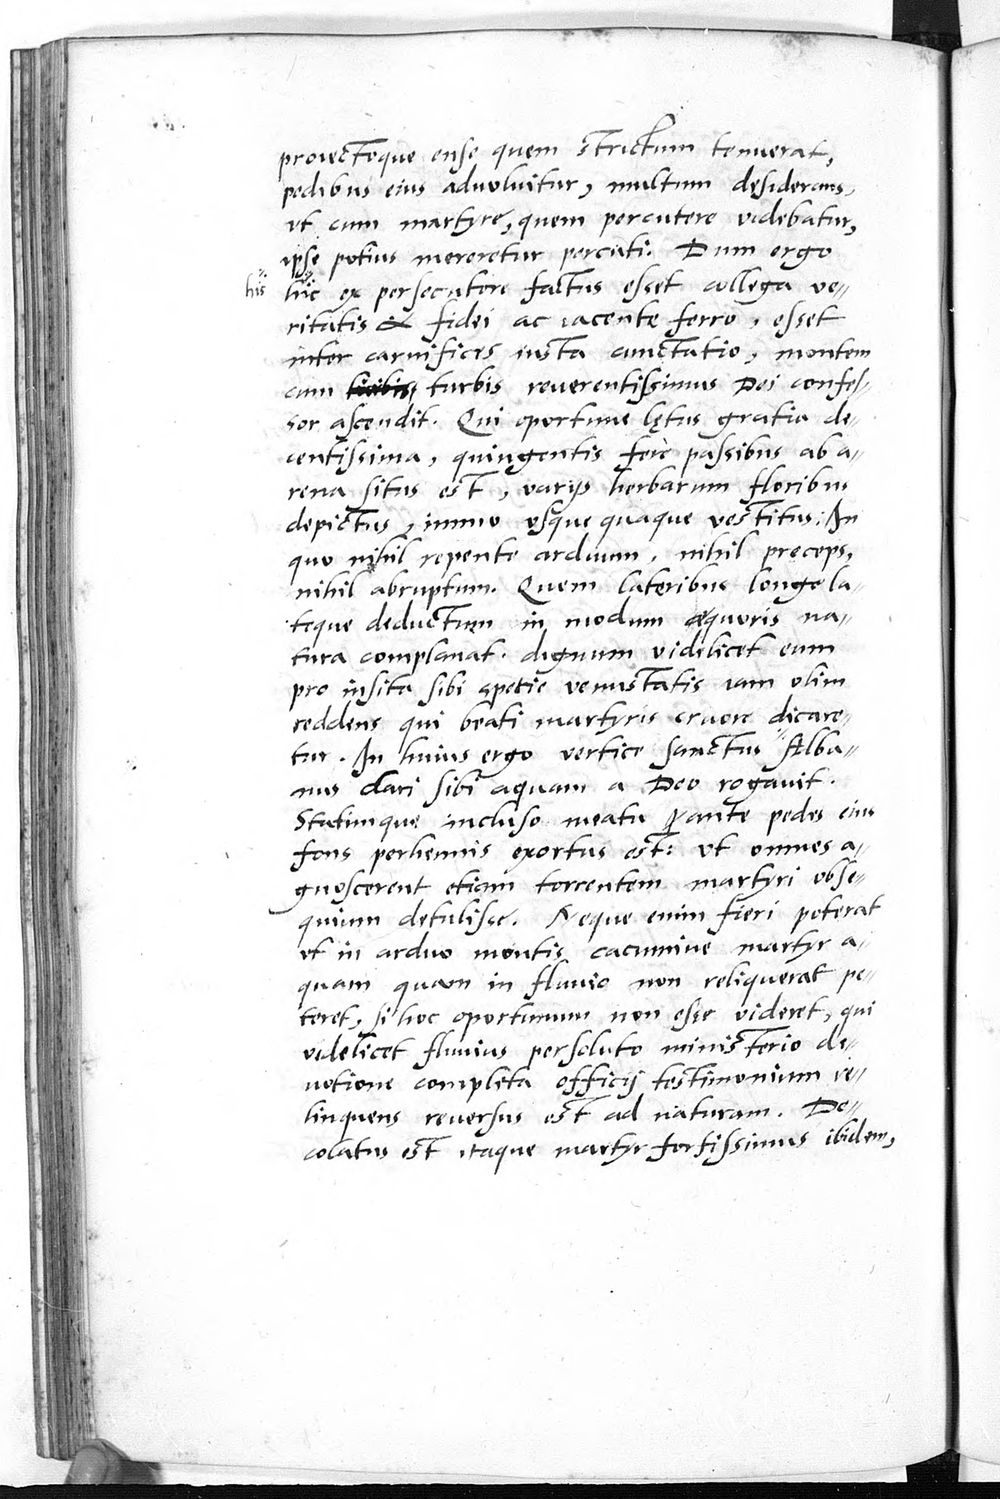 proiectoque ense quem strictum tenuerat,
pedibus eius advoluitur, multum desiderans,
ut cum martyre, quem percutere videbatur,
ipse potius mereretur percuti. Dum ergo
his hic ex persecutore factus esset collega ve=
ritatis & fidei ac iacente ferro, esset
inter carnifices iusta cunctatio, montem
cum turbis reverentissimus Dei confes=
sor ascendit. Qui oportune lętus gratia de=
centissima, quingentis fere passibus ab a=
rena situs est, varijs herbarum floribus
depictus, immo usque quaque vestitus: In
quo nihil repente arduum, nihil preceps,
nihil abruptum. Quem lateribus longe la=
teque deductum in modum æquoris na=
tura complanat. dignum videlicet eum
pro insita sibi spetie venustatis iam olim
reddens qui beati martyris cruore dicare=
tur. In huius ergo vertice sanctus Alba=
nus dari sibi aquam a Deo rogavit.
Statimque incluso meatu ante pedes eius
fons perhennis exortus est: ut omnes a=
gnoscerent etiam torrentem martyri obse=
quium detulisse. Neque enim fieri poterat
ut in arduo montis cacumine martyr a=
quam quam in fluvio non reliquerat pe=
teret, si hoc oportunum non esse videret, qui
videlicet fluvius persoluto ministerio de=
votione completa officij testimonium re=
linquens reversus est ad naturam. De=
colatus est itaque martyr fortissimus ibidem,